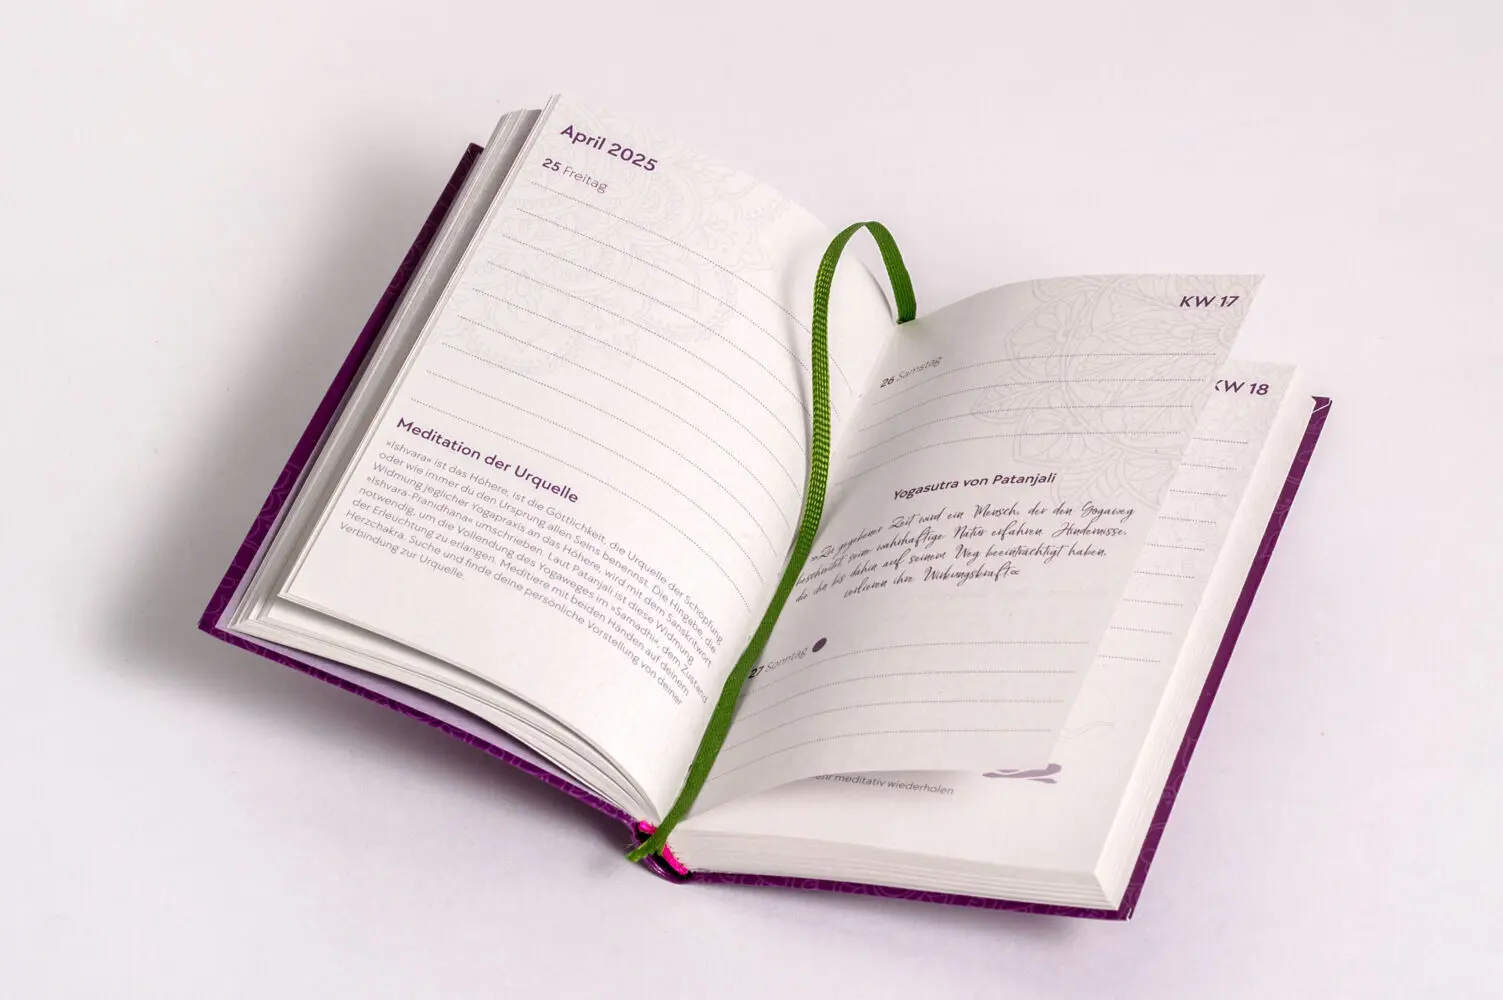 April 2025
25 Freitag
Meditation der Urquelle
»Ishvara« ist das Höhere, ist die Göttlichkeit, die Urquelle der Schöpfung
oder wie immer du den Ursprung allen Seins benennst. Die Hingabe, die
Widmung jeglicher Yogapraxis an das Höhere, wird mit dem Sanskritwort
»Ishvara-Pranidhana« umschrieben. Laut Patanjali ist diese Widmung
notwendig, um die Vollendung des Yogaweges im »Samadhi«, dem Zustand
der Erleuchtung zu erlangen. Meditiere mit beiden Händen auf deinem
Herzchakra. Suche und finde deine persönliche Vorstellung von deiner
Verbindung zur Urquelle.
KW 17
26 Samstag
Yogasutra von Patanjali
»Zu gegebener Zeit wird ein Mensch, der den Yogaweg
beschreitet seine wahrhaftige Natur erfahren. Hindernisse,
die ihn bis dahin auf seinem Weg beeinträchtigt haben,
verlieren ihre Wirkungskraft«
27 Sonntag
KW 18
meditativ wiederholen